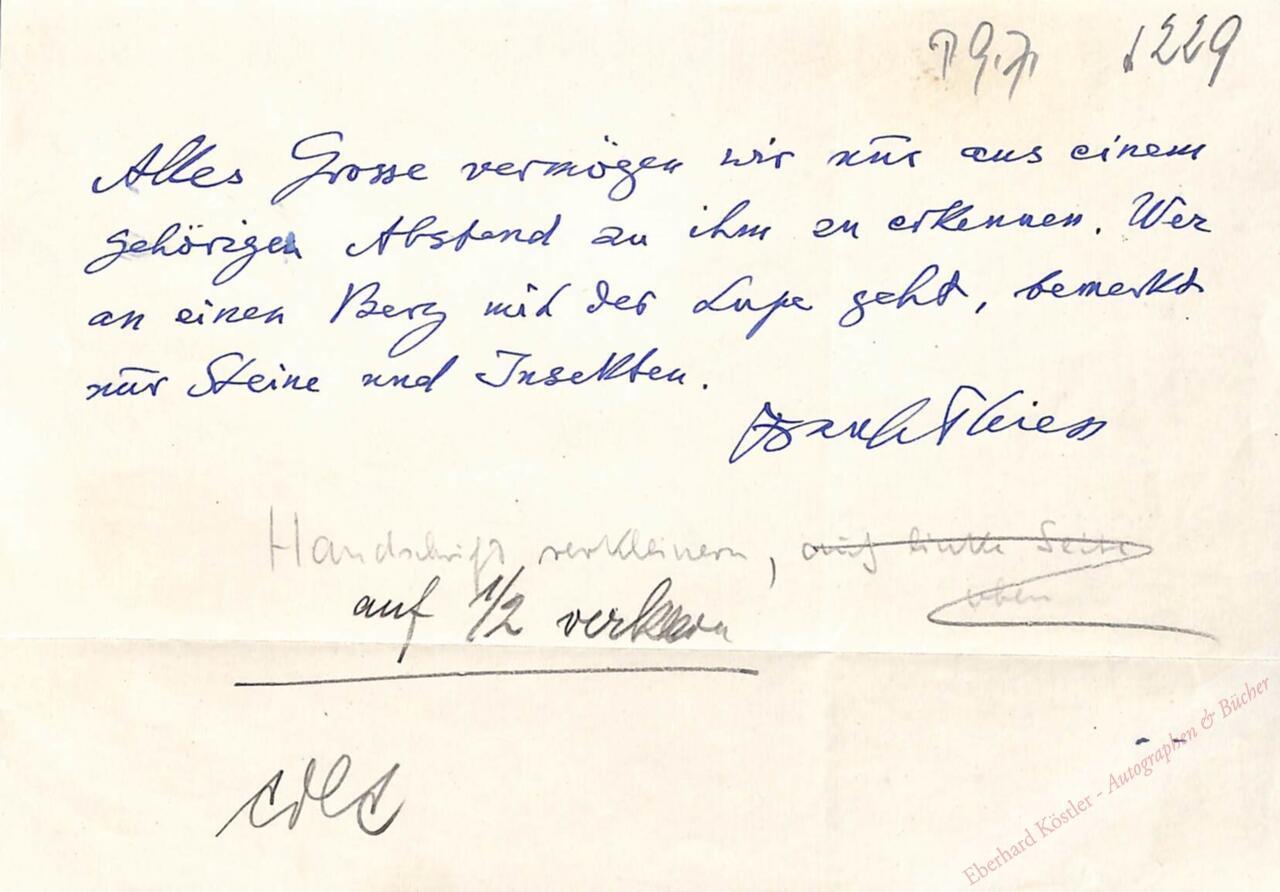 229
Alles Grosse vermögen wir nūr aus einem
gehörigen Abstand zu ihm zu erkennen. Wer
an einen Berg mit der Lupe geht, bemerkt
nūr Steine und Insekten.
Frank Thiess
Handschrift verkleinern, auf linke Seite
oben
auf 1/2 verkleinern
Eberhard Köstler - Autographen & Bücher